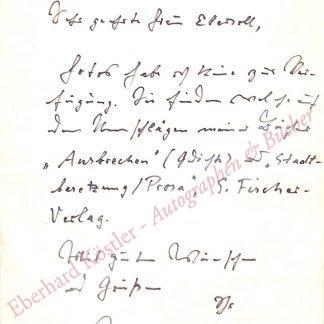 Sehr geehrte Frau Ebersoll,
Fotos habe ich keine zur Ver-
fügung. Sie finden welche auf
den Umschlägen meiner Bücher
„Ausbrechen“ (Gdicht) ud „Stadt-
besetzung/Prosa“. S. Fischer-
Verlag.
Mit guten Wünschen
ud Grüßen
Ihr
Eberhard Köstler - Autographen & Bücher